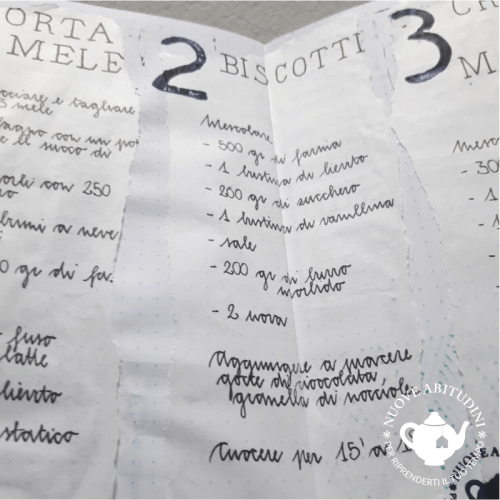 ORTA
MELE
ciare e tagliare
3 mele
agno con un po'
e il succo di
orli con 250
bumi a neve
0 gr di fa
fuso
latte
lievito
statico
2 BISCOTTI
Mescolare
- 500 gr di farina
- 1 bustina di lievito
- 200 gr di zucchero
- 1 bustina di vanillina
- sale
- 200 gr di burro
morbido
- 2 uova
Aggiungere a piacere
gocce di cioccolata,
granella di nocciole
Cuocere per 15' a 1
3
M
mesc
- 30
- 1
- 1
NUOVE ABITUDINI
PER RIPRENDERTI IL TUO TEMPO